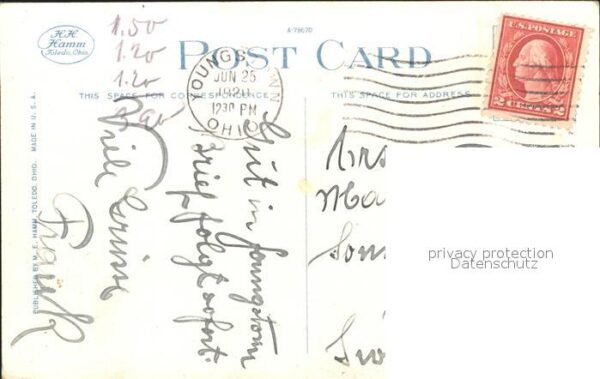 HH
Hamm
Toledo, Ohio.
A-78670
POST CARD
THIS SPACE FOR CORRESPONDENCE
THIS SPACE FOR ADDRESS
PUBLISHED BY M. E. HAMM, TOLEDO, OHIO. MADE IN U. S. A.
1.50
1.20
1.20
YOUNGSTOWN
JUN 25
1920
12 30 PM
OHIO
U.S. POSTAGE
2 CENTS 2
Gut in Youngstown
Brief folgt sofort.
Viele Grüsse
Frank
Mrs
Ma
privacy protection
Datenschutz